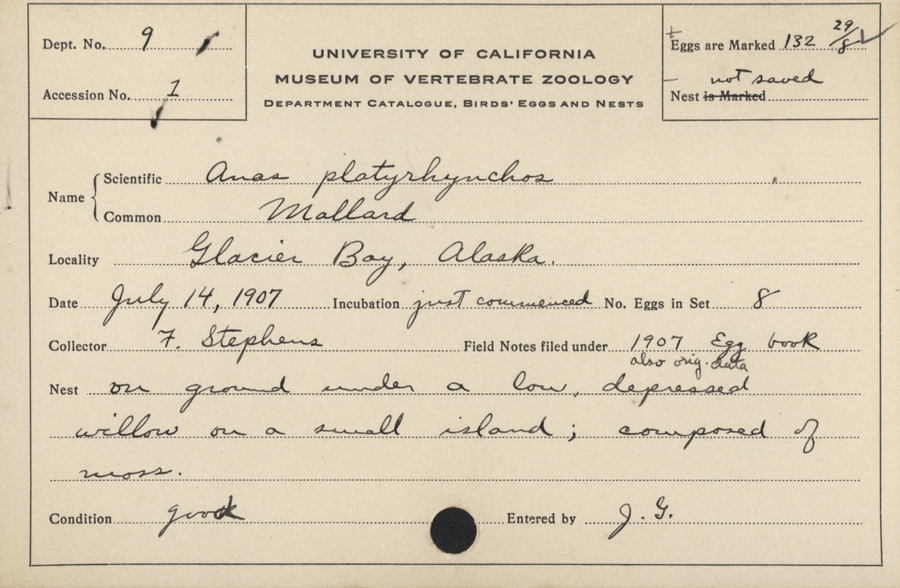 Dept. No. 9
Accession No. 1
UNIVERSITY OF CALIFORNIA
MUSEUM OF VERTEBRATE ZOOLOGY
DEPARTMENT CATALOGUE, BIRDS' EGGS AND NESTS
Eggs are Marked 132 29/8
not saved
Nest is Marked
Name
Scientific Anas platyrhynchos
Common Mallard
Locality Glacier Bay, Alaska.
Date July 14, 1907 Incubation just commenced No. Eggs in Set 8
Collector F. Stephens Field Notes filed under 1907 Egg book
also orig. data
Nest on ground under a low, depressed
willow on a small island; composed of
moss.
Condition good Entered by J. G.